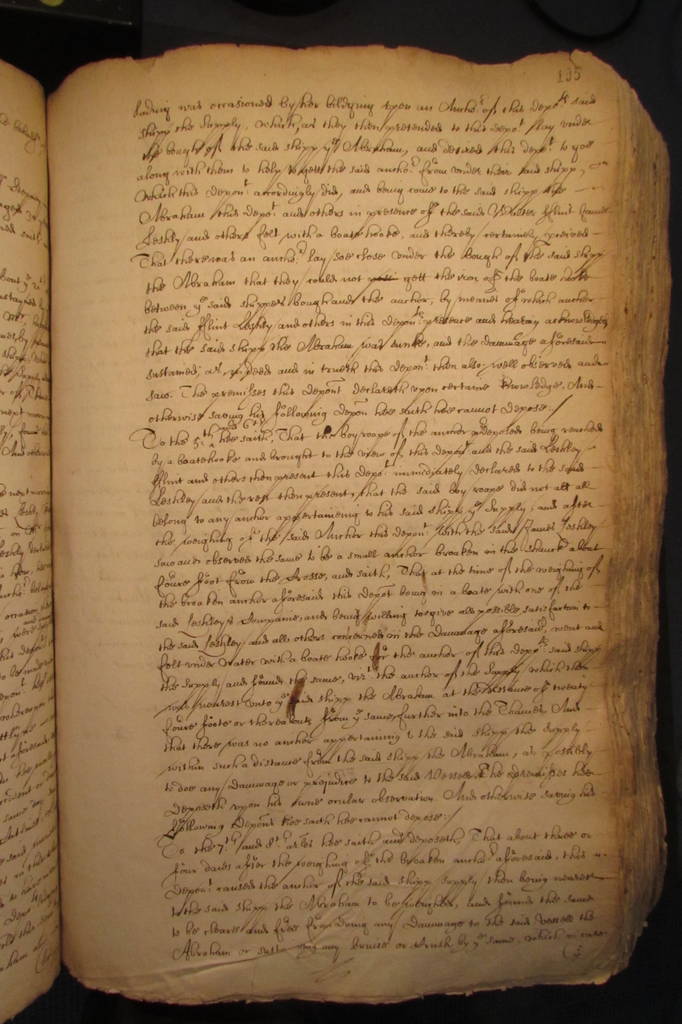 195
lading was occasioned by her bildging upon an Anchor of this depots said
shipp the Supply, which, as they then pretended to this depot lay under
the bough of the said shipp ye Abraham, and desired this depot to goe
along with them to help to gett the said anchor from under their said shipp,
which this deponent accordingly did, and being come to the said shipp the
Abraham this depot and others in presence of the said Flint
Leshley and others felt with a boate hooke, and thereby certainely perceived
That there was an anchor lay soe close under the bough of the said shipp
the Abraham that they could not gett the iron of the boate hooke
between ye said shipps bough and the anchor, by meanes of which anchor
the said Flint Leshley and others in this deponents presence and hearing acknowledged
that the said shipp the Abraham was sunke, and the dammage aforesaid
sustained, as indeed and in trueth this deponent then alsoe well observed and
saw. The premisses this deponent declareth upon certaine knowledge, And
otherwise saving his following deposition hee saith hee cannot depose./
To the 5th and 6th hee saith, That the boy roape of the anchor predeposed being reached
by a boatehooke and brought to the view of this depot and the said Leshley
Flint and others then present this depot immediately declared to the said
Leshley and the rest then present, that the said boy roape did not at all
belong to any anchor appertaineing to his said shipp ye Supply, and after
the weighing of the said Anchor this deponent with the said James Leshley
saw and observed the same to be a small anchor broaken in the shanck about
foure foot from the Crosse, and saith, That at the time of the weighing of
the broaken anchor aforesaid this depot being in a boate with one of the
said Leshleys Companie and being willing to give all possible satisfaction to
the said Leshley and all others concerned in the Dammage aforesaid, went and
felt under water with a boate hooke for the anchor of this depots said shipp
the Supply and found the same, vizt the anchor of the Supply which then
was nearest unto ye said shipp the Abraham at the distance of twenty
foure foote or thereabouts from ye same further into the Thames And
that there was no anchor appertaining to the said shipp the Supply
within such a distance from the said shipp the Abraham, as possibly
to doe any dammage or prejudice to the said Vessell. The premisses hee
deposeth upon his owne ocular observation. And otherwise saving his
following deposition hee saith hee cannot depose./
To the 7th and 8th arles hee saith and deposeth, That about three or
four daies after the weighing of the broaken anchor aforesaid, this
deponent caused the anchor of the said shipp Supply then being nearest
to the said shipp the Abraham to be weighed, and found the same
to be cleare and free from doing any Dammage to the said Vessell the
Abraham or any bruise or by ye same, which in case